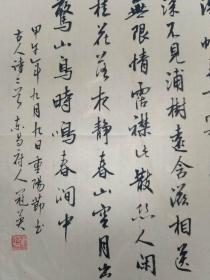 深不見浦樹遠含滋相送
無限情霑襟比散絲人闲
桂花落夜静春山空月出
驚山鳥時鳴春澗中
甲午年九月九日重陽節书
古人诗三首东昌府人冠英